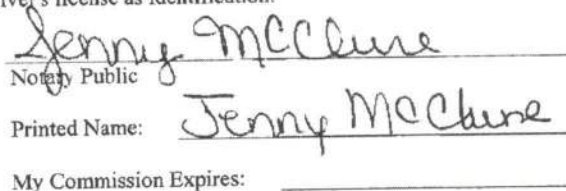 iver's license as identification.
Jenny McClure
Notary Public
Printed Name: Jenny McClure
My Commission Expires: